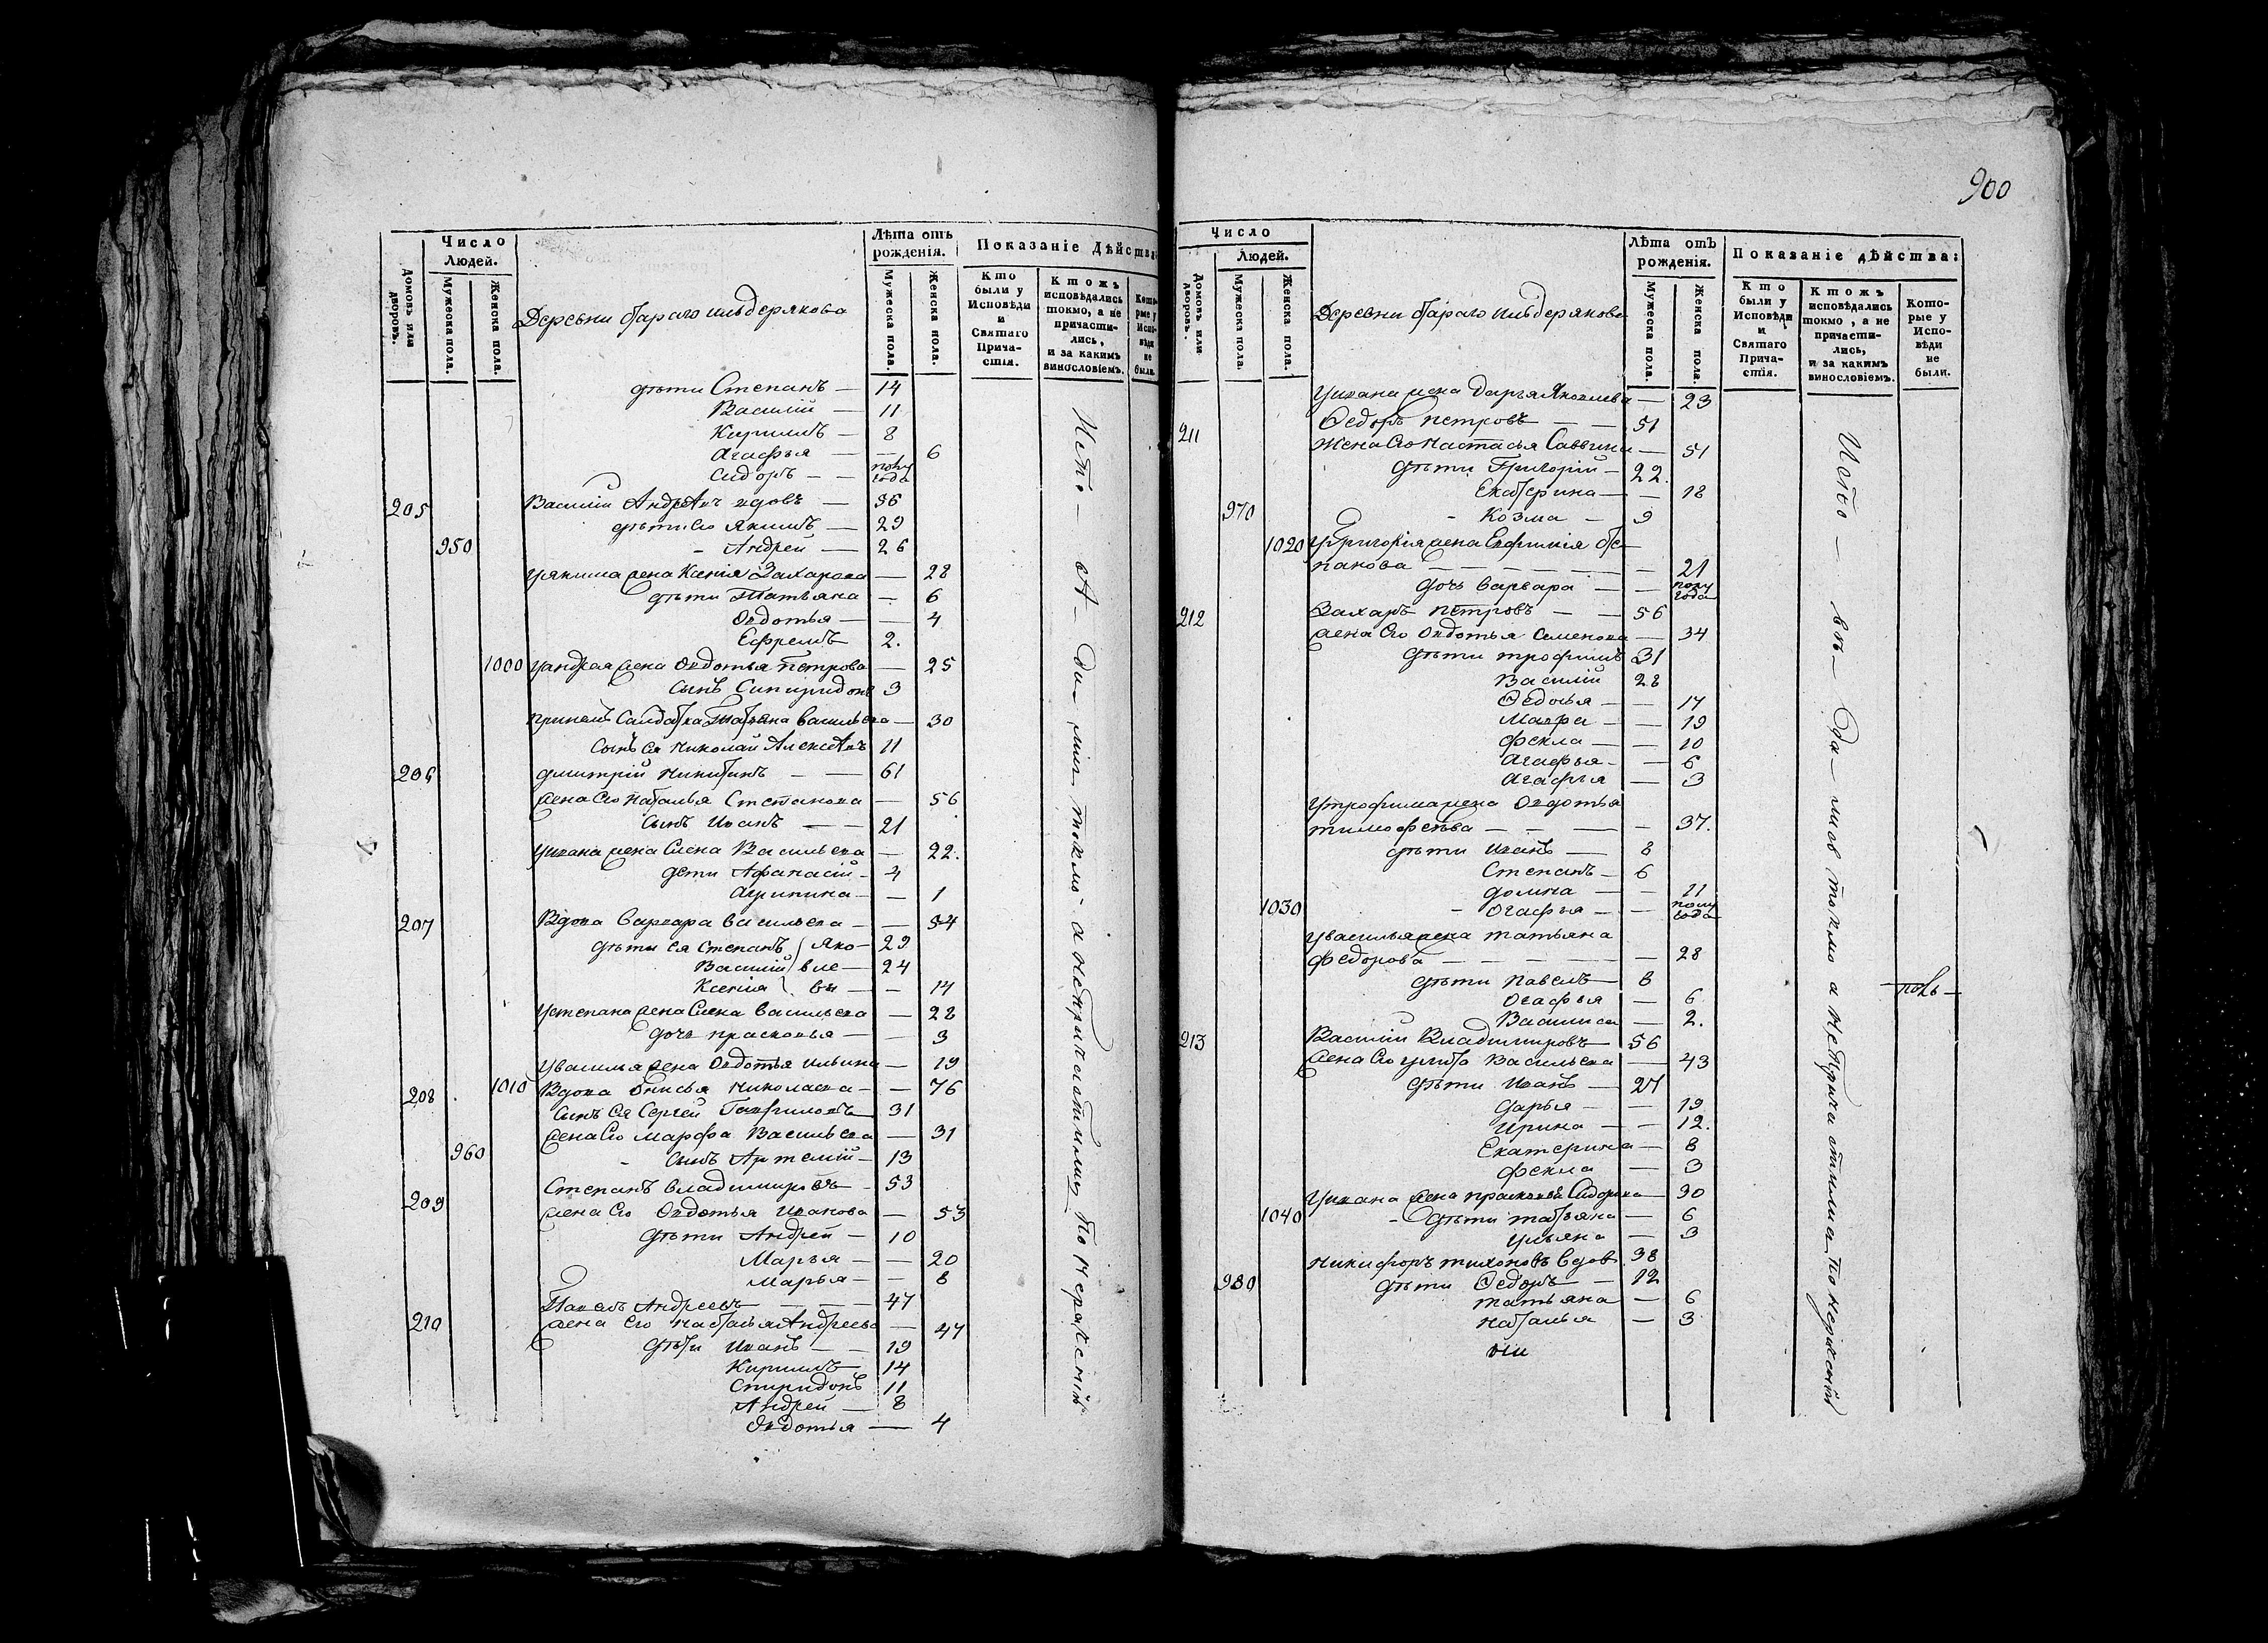 900
Число
Людей.
Лѣта отъ
рожденія.
Показаніе Дѣйства:
Домовъ или дворовъ.
Мужеска пола.
Женска пола.
Деревни Стараго ильдерякова
Мужеска пола.
Женска пола.
Кто были у Исповѣди и Святаго Причастія.
Ктожъ исповѣдались токмо, а не причастились, и за какимъ винословіемъ.
Которые у Исповѣди не были.
дѣти Степанъ — 14
Василій — 11
Кирилъ — 8
Агафья — — 6
Сидоръ — — полугода
205 Василій Андреевъ вдовъ — 56
дѣти Его Якимъ — 29
950 - Андрей — 26
уякима жена Ксенія Захарова — 28
дѣти Татьяна — 6
Овдотья — — 4
Ефремъ 2.
1000 уандрея жена Овдотья Петрова — 25
сынъ Спиридонъ 3
Салдатка Татьяна Васильева — 30
Сынъ Ея Николай Алексеевъ 11
206 Дмитрій Никитинъ — — 61
жена Его Наталья Степанова — 56
Сынъ Иванъ — — 21
уивана жена Елена Васильева — 22.
дети Афанасій - 4
Агрипина — — 1
207 Вдова Варвара Васильева — — 54
дѣти ея Степанъ ) Яко — 29
Василій ) вле — 24
Ксенія ) вы — — 14
устепана жена Елена Васильева — 28
дочь прасковья — — 3
увасилья жена Овдотья Ильина — 19
208 1010 Вдова Анисья Николаева — — 76
Сынъ Ея Сергей Гаврило́въ 31
жена Его Марфа Васильева — 31
960 - Сынъ Артемій — 13
209 Степанъ Владимировъ - 53
жена Его Овдотья Иванова — 53
дѣти Андрей — 10
Марья — — 20
Марья — — 8
210 Павелъ Андреевъ — — — 47
жена Его Настасья Андреева — 47
дѣти Иванъ — — 19
Кирилъ 14
Спиридонъ 11
Андрей — 8
Овдотья — 4
токмо а непричастились По нераженію
Число
Людей.
Лѣта отъ
рожденія.
Показаніе дѣйства:
Домовъ или дворовъ.
Мужеска пола.
Женска пола.
Деревни Стараго ильдерякова
Мужеска пола.
Женска пола.
Кто были у Исповѣди и Святаго Причастія.
Ктожъ исповѣдались токмо, а не причастились, и за какимъ винословіемъ.
Которые у Исповѣди не были.
уивана жена Дарья Яковлева — 23
211 Федоръ Петровъ — — 51
Жена Его Настасья Саввина — 51
дѣти Григорій — 22.
Екатерина — — 18
970 - Козма — 9
1020 уГригорія жена Евфимія Сте-
панова — — — — — — 21
дочь Варвара — — полугода
212 Захаръ Петровъ — — 56
жена Его Овдотья Семенова — 34
дѣти трофимъ 31
Василій 28
Федосья — — 17
Мавра — — 19
Фекла — — 10
Агафья — — 6
Агафья — 3
утрофима жена Овдотья
тимофеева — — — — 37.
дѣти Иванъ — 8
Степанъ — 6
домна — — 11
1030 - Огафья — — полугода
увасилья жена татьяна
Федорова — — — — — 28
дѣти Павелъ — 8
Огафья — 6
Василиса — 2.
213 Василій Владимировъ — 56
жена Его улита Васильева — 43
дѣти Иванъ — 27
Дарья — — 19
Ирина — — 12.
Екатерина — 8
Фекла — 3
уивана жена прасковья Сидорова — 30
1040 - дѣти татьяна — 6
ульяна — 3
Никифоръ тихоновъ вдовъ 38
980 дѣти Федоръ — 12
татьяна — 6
Наталья — 3
токмо а непричастились по нераженію